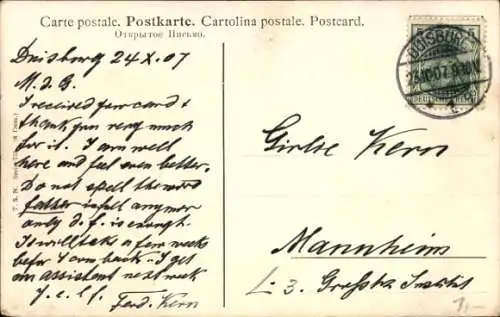 Carte postale. Postkarte. Cartolina postale. Postcard.
Открытое Письмо.
Duisburg 24 X. 07
M. d. G.
I received your card &
thank you very much
for it. I am well
here and feel even better.
Do not spell the word
father in full anymor
only d. f. is enough.
It will take a few weeks
befor I am back. I get
an assistent next week
Ferd. Kern
Kern
Mannheim
L. 3.
DUISBURG
1,-